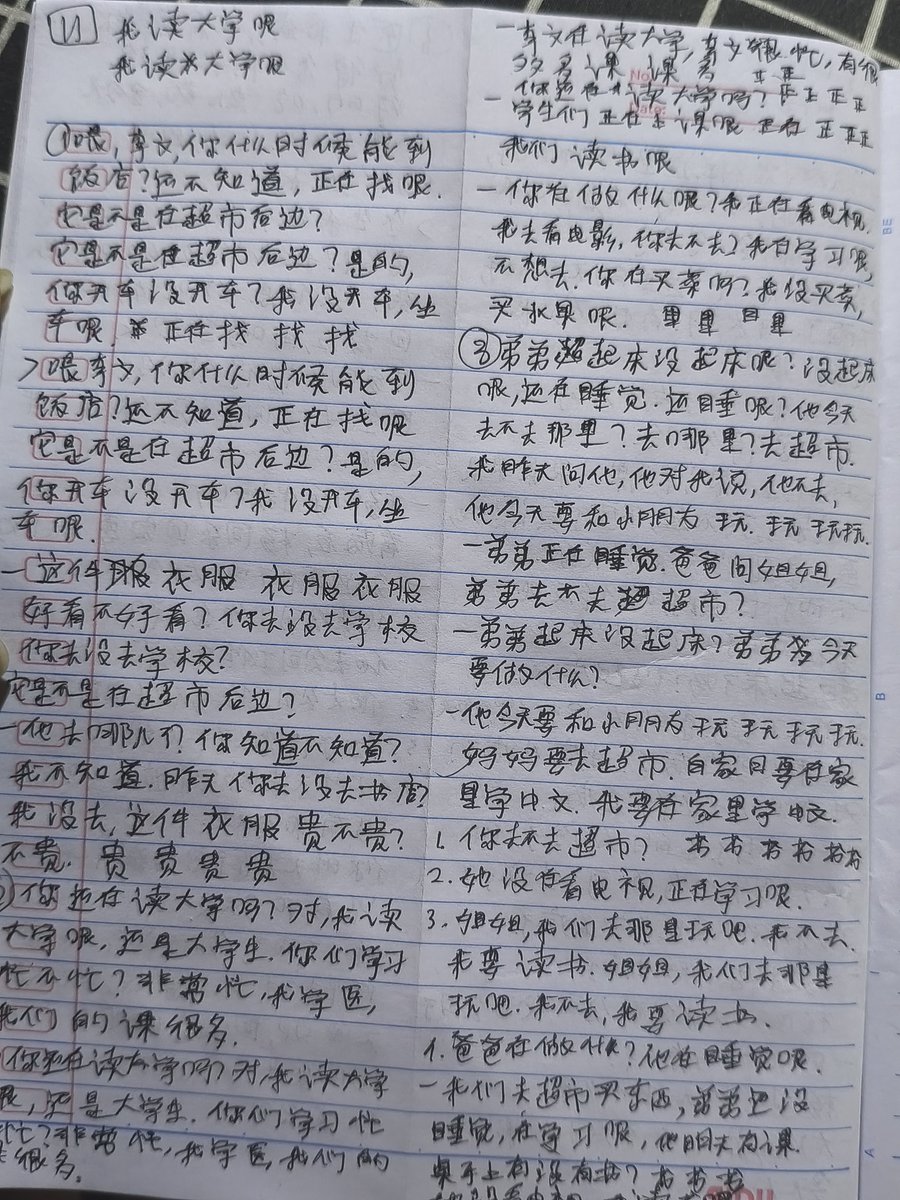 11 我读大学呢
我读大学呢
① 喂,李文,你什么时候能到
饭店?还不知道,正在找呢.
它是不是在超市后边?
它是不是在超市后边?是的,
你开车没开车?我没开车,坐
车呢 正在找 找 找
> 喂李文,你什么时候能到
饭店?还不知道,正在找呢
它是不是在超市后边?是的,
你开车没开车?我没开车,坐
车呢.
- 这件 衣服 衣服 衣服
好看不好看?你去没去学校
你去没去学校?
它是不是在超市后边?
- 他去哪儿了?你知道不知道?
我不知道.昨天你去没去书店?
我没去,这件衣服贵不贵?
不贵. 贵 贵 贵 贵
2) 你还在读大学吗?对,我读
大学呢,还是大学生.你们学习
忙不忙?非常忙,我学医,
我们的课很多.
你还在读大学吗?对,我读大学
呢,还是大学生.你们学习忙
忙?非常忙,我学医,我们的
很多.
- 李文在读大学,李文很忙,有很
多 课 课 正 正
- 你还在读大学吗?正 正 正 正
学生们正在上课呢 正在 正 正 正
我们读书呢
- 你在做什么呢?我正在看电视.
我去看电影,你去不去?我在学习呢,
不想去.你在买菜吗?我没买菜,
买水果呢. 里 里 里
③ 弟弟起床没起床呢?没起床
呢,还在睡觉.还睡呢?他今天
去不去那里?去哪里?去超市.
我昨天问他,他对我说,他不去,
他今天要和小朋友 玩. 玩 玩玩.
- 弟弟正在睡觉.爸爸问姐姐,
弟弟去不去超市?
- 弟弟起床没起床?弟弟今天
要做什么?
- 他今天要和小朋友 玩 玩 玩 玩.
妈妈要去超市. 自家 要在家
里学中文.我要在家里学中文.
1. 你去不去超市? 书 书 书 书 书书
2. 她没在看电视,正在学习呢.
3. 姐姐,我们去那里玩吧.我不去.
我要读书.姐姐,我们去那里
玩吧.我不去,我要读书.
4. 爸爸在做什么?他在睡觉呢.
- 我们去超市买东西,弟弟 没
睡觉,在学习呢,他明天有课.
桌子上有没有书? 书 书 书